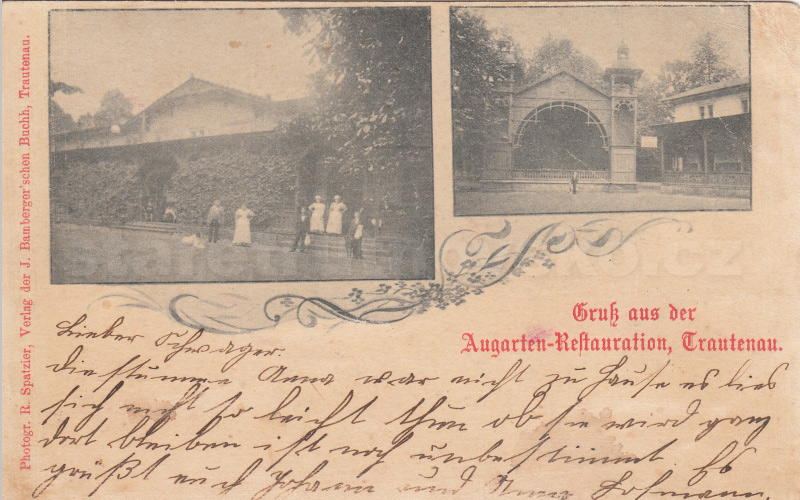 Photogr. R. Spatzier, Verlag der J. Bamberger'schen Buchh, Trautenau.
Gruß aus der
Augarten-Restauration, Trautenau.
Lieber Schwager.
die stumme Anna war nicht zu Hause es lies
sich nicht so leicht thun ob sie wird ganz
dort bleiben ist noch unbestimmt. Es
grüßt euch Johann und Anna